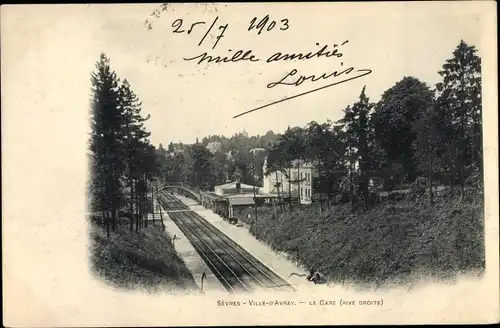 25/7 1903
Mille amitiés
Louis
SÈVRES - VILLE-D'AVRAY. — LA GARE (RIVE DROITE)